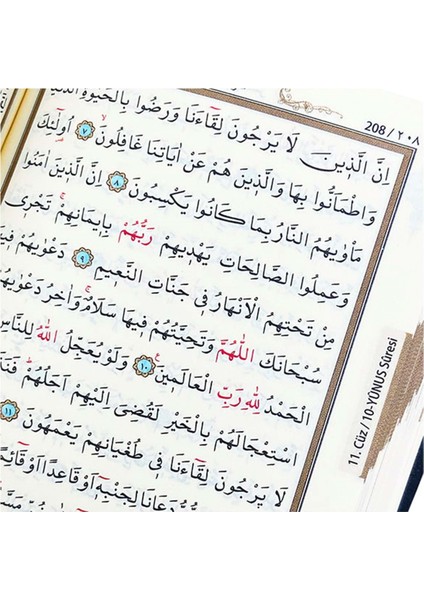 208 / ٢٠٨
اِنَّ الَّذ۪ينَ لَا يَرْجُونَ لِقَٓاءَنَا وَرَضُوا بِالْحَيٰوةِ الدُّنْيَا
وَاطْمَاَنُّوا بِهَا وَالَّذ۪ينَ هُمْ عَنْ اٰيَاتِنَا غَافِلُونَ ٧ اُو۬لٰٓئِكَ
مَأْوٰيهُمُ النَّارُ بِمَا كَانُوا يَكْسِبُونَ ٨ اِنَّ الَّذ۪ينَ اٰمَنُوا
وَعَمِلُوا الصَّالِحَاتِ يَهْد۪يهِمْ رَبُّهُمْ بِا۪يمَانِهِمْۚ تَجْر۪ي
مِنْ تَحْتِهِمُ الْاَنْهَارُ ف۪ي جَنَّاتِ النَّع۪يمِ ٩ دَعْوٰيهُمْ ف۪يهَا
سُبْحَانَكَ اللّٰهُمَّ وَتَحِيَّتُهُمْ ف۪يهَا سَلَامٌۚ وَاٰخِرُ دَعْوٰيهُمْ
الْحَمْدُ لِلّٰهِ رَبِّ الْعَالَم۪ينَ۟ ١٠ وَلَوْ يُعَجِّلُ اللّٰهُ لِلنَّاسِ
اسْتِعْجَالَهُمْ بِالْخَيْرِ لَقُضِيَ اِلَيْهِمْ اَجَلُهُمْۜ
لَا يَرْجُونَ لِقَٓاءَنَا ف۪ي طُغْيَانِهِمْ يَعْمَهُونَ ١١
دَعَانَا لِجَنْبِه۪ٓ اَوْ قَاعِدًا اَوْ قَٓائِمًا
11. Cüz / 10-YÛNUS Sûresi